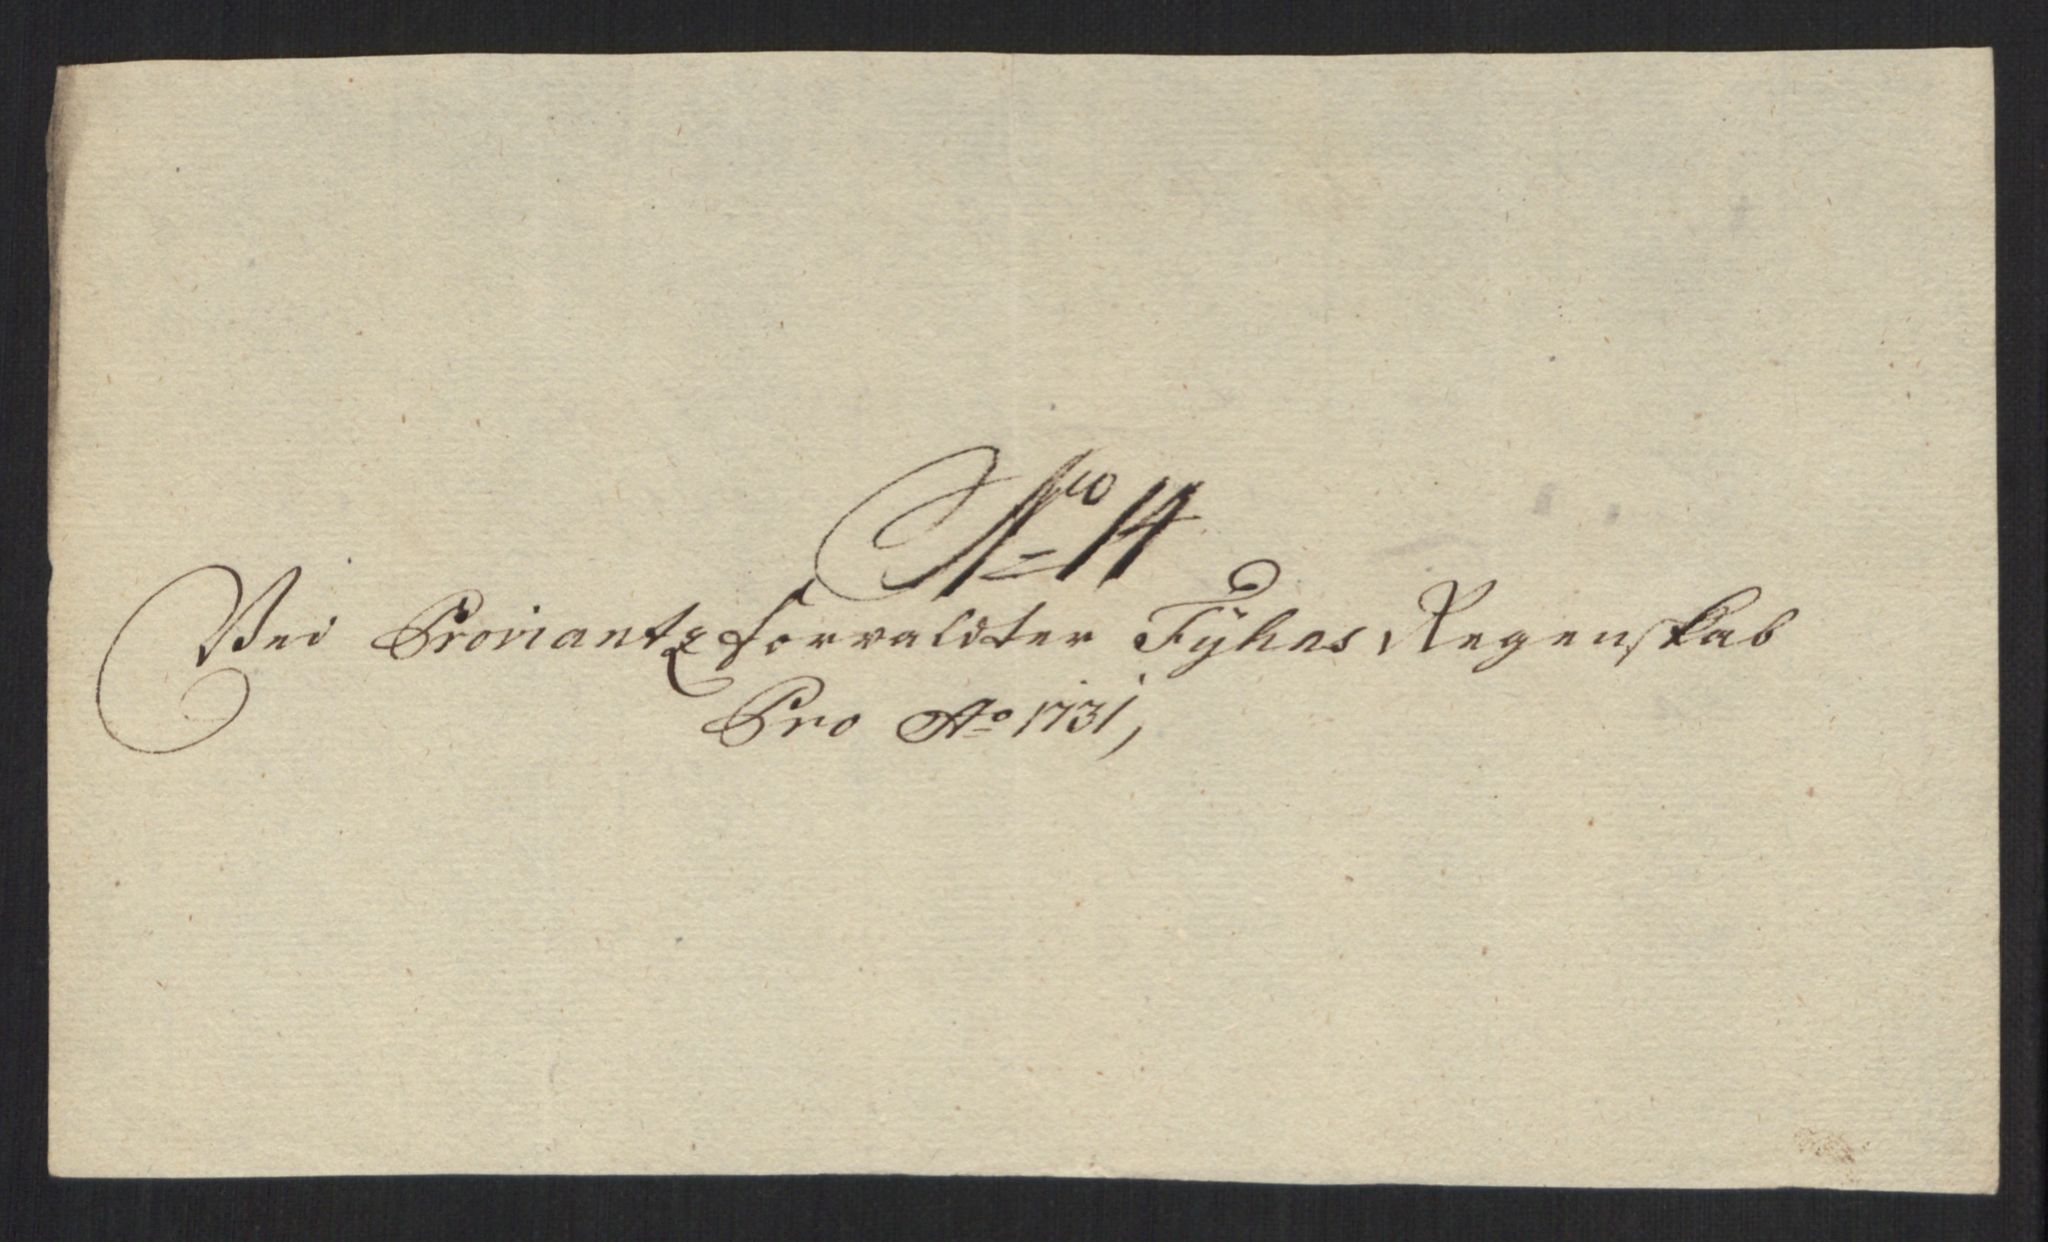 No 14
Ved Proviantz forvaldter Fÿhns Regenskab
Pro Ao 1731,